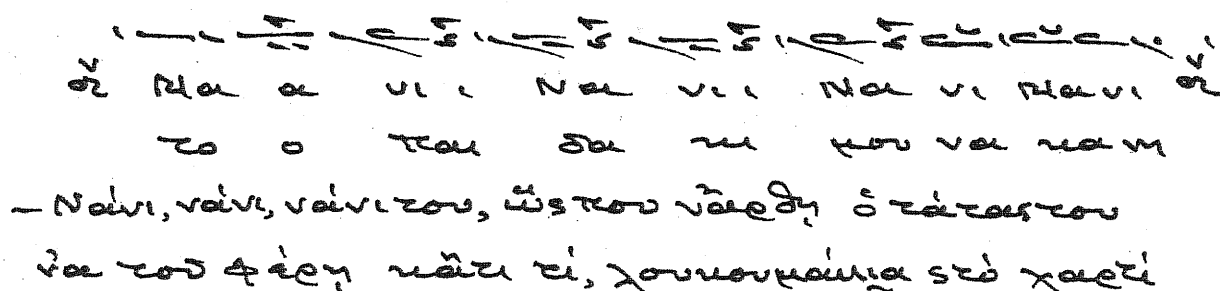 Να α νι ι Να νι ι Να νι Νανι
το ο παι δα κι μου να κανη
– Νάνι, νάνι, νάνι του, ὥς που νἄρθη ὁ τάτας του
νὰ τοῦ φάρη κᾶτι τί, λουκουμάκια στὸ χαρτί